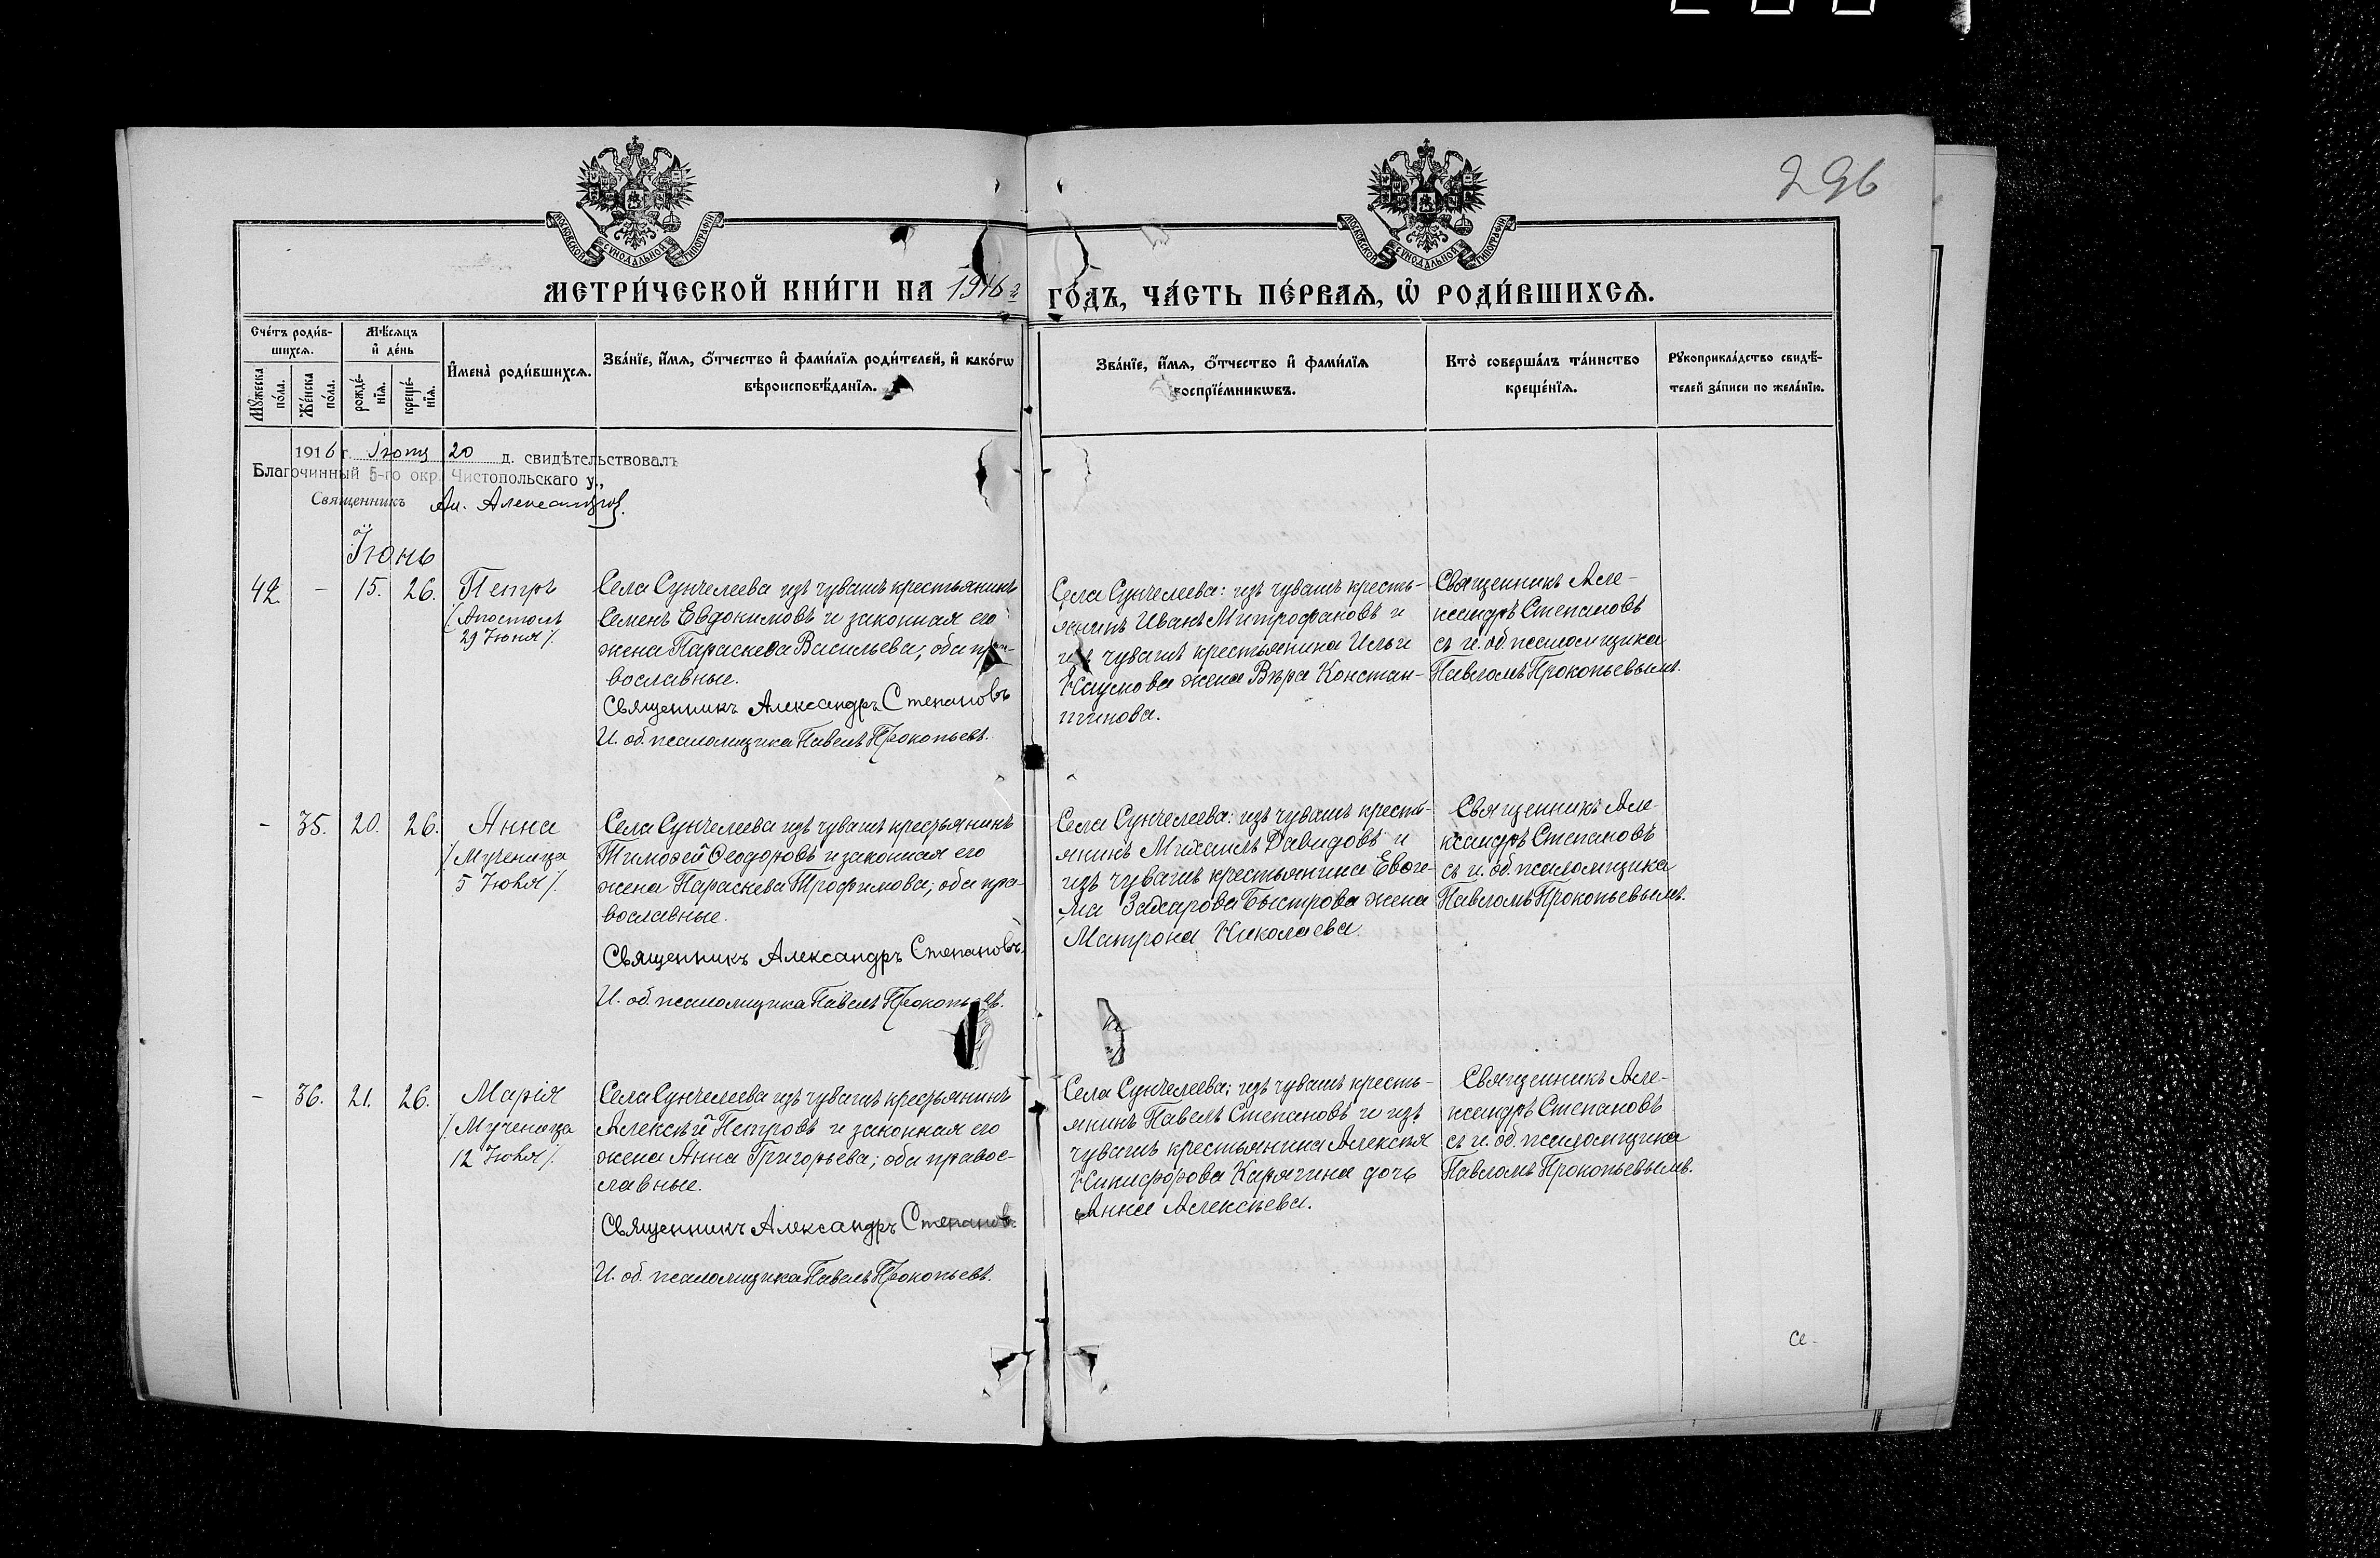 296
МЕТРИ́ЧЕСКОЙ КНИ́ГИ НА 1916 г.
ГО́ДЪ, ЧА́СТЬ ПЕ́РВАѦ, Ѡ҆ РОДИ́ВШИХСѦ.
Сче́тъ роди́в-
шихсѧ.
Мѣ́сѧцъ
и҆ де́нь
Мꙋ́жеска
по́ла.
Же́нска
по́ла.
рожде́-
нїѧ.
креще́-
нїѧ.
И҆мена̀ роди́вшихсѧ.
Зва́нїе, и҆́мѧ, ѻ҆́тчество и҆ фами́лїѧ роди́телей, и҆ како́гѡ
вѣроисповѣ́данїѧ.
Зва́нїе, и҆́мѧ, ѻ҆́тчество и҆ фами́лїѧ
воспрїе́мникѡвъ.
Кто̀ соверша́лъ та́инство
креще́нїѧ.
Рꙋкоприкла́дство свидѣ́-
телей за́писи по жела́нїю.
1916 г. Іюля 20 д. свидѣтельствовалъ
Благочинный 5-го окр. Чистопольскаго у.,
Священникъ Ал. Александров.
Іюнь
42. - 15. 26. Петръ
/Апостолъ
29 Іюня/.
Села Сунчелеева изъ чувашъ крестьянинъ
Семенъ Евдокимовъ и законная его
жена Параскева Васильева; оба пра-
вославные.
Священникъ Александръ Степановъ
И. об. псаломщика Павелъ Прокопьевъ.
Села Сунчелеева: изъ чувашъ кресть-
янинъ Иванъ Митрофановъ и
изъ чувашъ крестьянина Ильи
Наумова жена Вѣра Констан-
тинова.
Священникъ Але-
ксандръ Степановъ
съ и. об. псаломщика
Павломъ Прокопьевымъ.
- 35. 20. 26. Анна
/Мученица
5 Іюля/.
Села Сунчелеева изъ чувашъ крестьянинъ
Тимоѳей Ѳеодоровъ и законная его
жена Параскева Трофимова; оба пра-
вославные.
Священникъ Александръ Степановъ.
И. об. псаломщика Павелъ Прокопьевъ.
Села Сунчелеева: изъ чувашъ кресть-
янинъ Михаилъ Давидовъ и
изъ чувашъ крестьянина
Захарова Быстрова жена
Матрона Николаева.
Священникъ Але-
ксандръ Степановъ
съ и. об. псаломщика
Павломъ Прокопьевымъ.
- 36. 21. 26. Марія
/Мученица
12 Іюля/.
Села Сунчелеева изъ чувашъ крестьянинъ
Алексѣй Петровъ и законная его
жена Анна Григорьева; оба правос-
лавные.
Священникъ Александръ Степановъ
И. об. псаломщика Павелъ Прокопьевъ.
Села Сунчелеева; изъ чувашъ кресть-
янинъ Павелъ Степановъ и изъ
чувашъ крестьянина Алексѣя
Никифорова Карягина дочь
Анна Алексѣева.
Священникъ Але-
ксандръ Степановъ
съ и. об. псаломщика
Павломъ Прокопьевымъ.